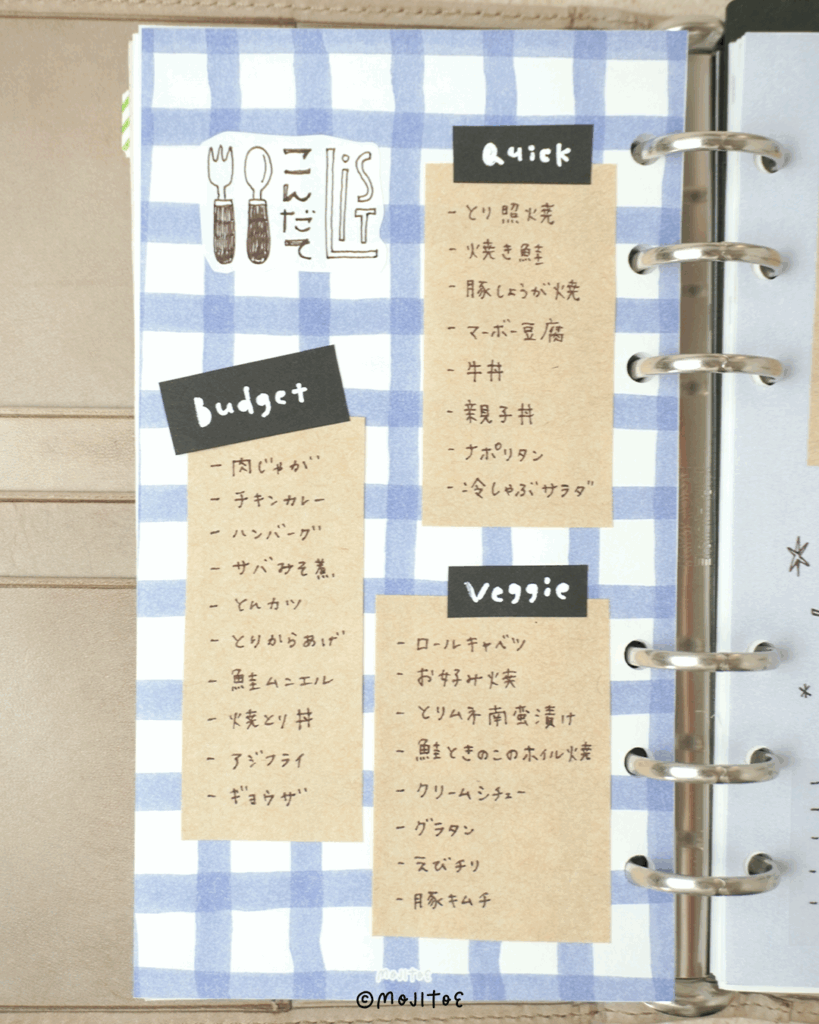 こんだて
LiST
Quick
- とり照焼
- 焼き鮭
- 豚しょうが焼
- マーボー豆腐
- 牛丼
- 親子丼
- ナポリタン
- 冷しゃぶサラダ
Budget
- 肉じゃが
- チキンカレー
- ハンバーグ
- サバみそ煮
- とんカツ
- とりからあげ
- 鮭ムニエル
- 焼とり丼
- アジフライ
- ギョウザ
Veggie
- ロールキャベツ
- お好み焼
- とりムネ南蛮漬け
- 鮭ときのこのホイル焼
- クリームシチュー
- グラタン
- えびチリ
- 豚キムチ
MOJITOE
©MOJITOE